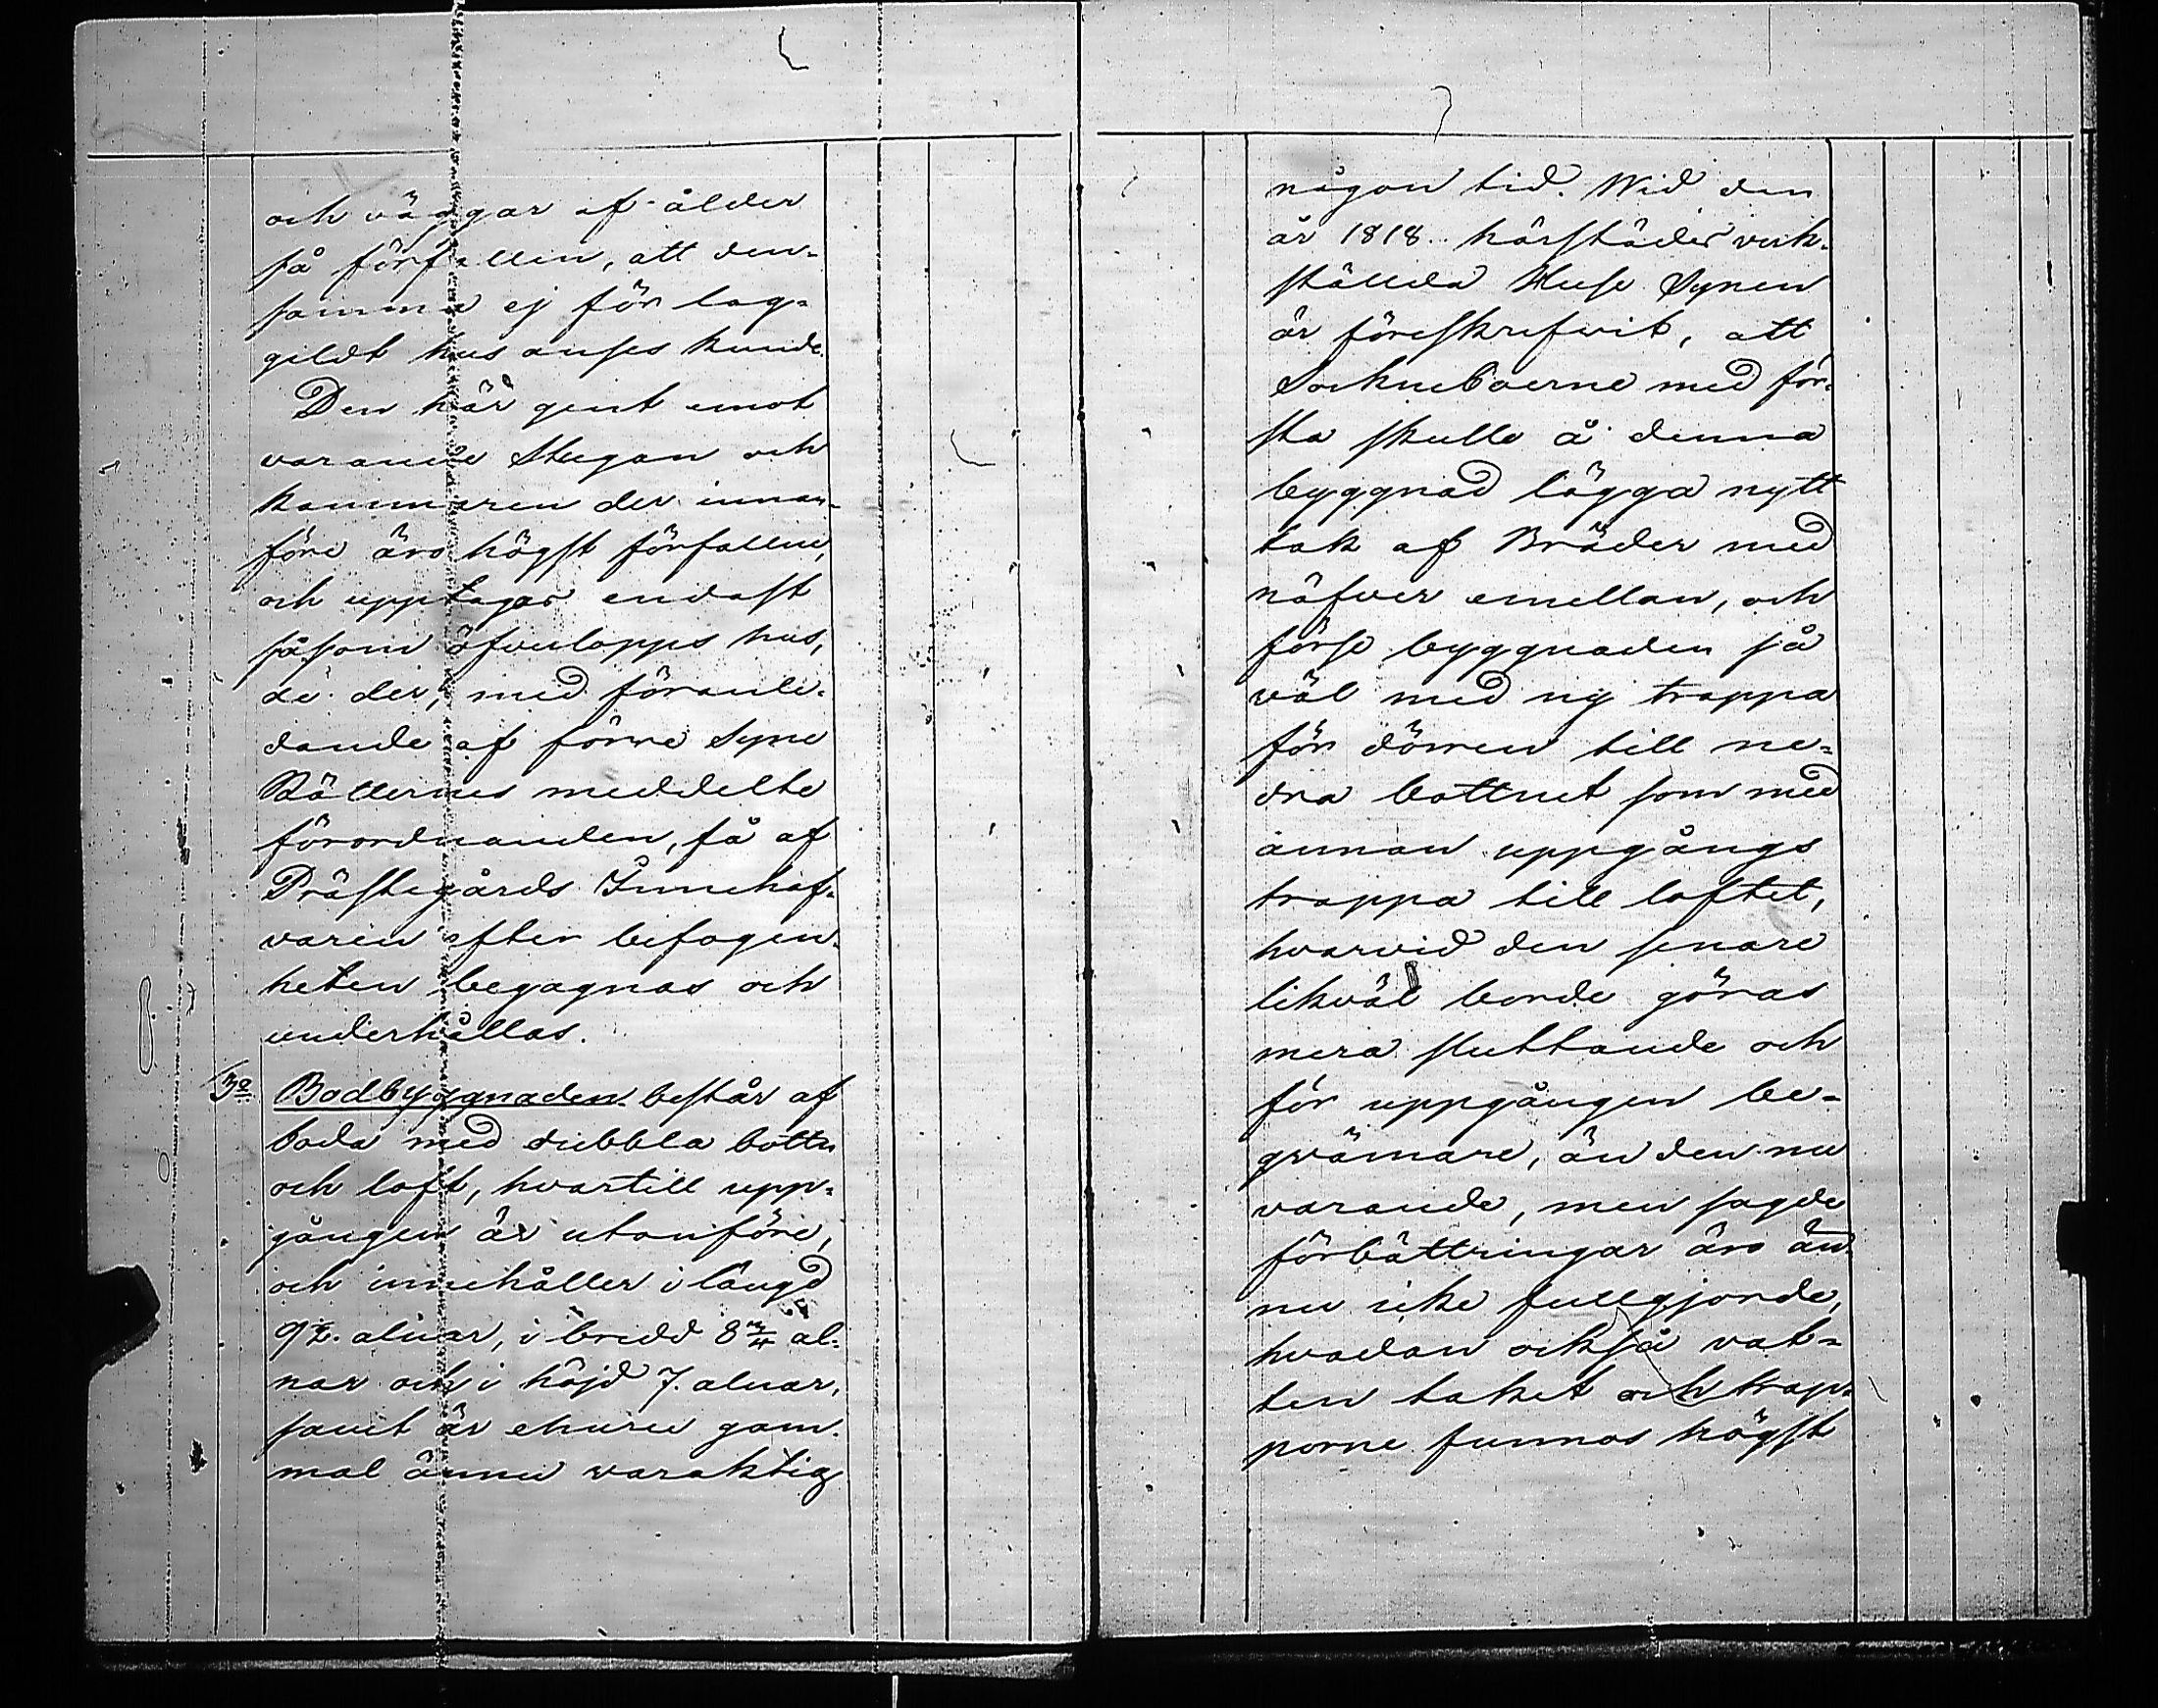 och väggar af ålder
så förfallen, att den-
samma ej för lag-
gildt hus anses kunde.
Den här gent emot
varande Stugan och
kammaren der innan-
före äro högst förfallne,
och upptages endast
såsom öfverlopps hus,
de der, med föranle-
dande af förre Syne
Rätternes meddelte
förordnanden, få af
Prästegårds Innehaf-
varen efter befogen-
heten begagnas och
underhållas.
3o Bodbyggnaden består af
boda med dubbla bottn
och loft, hvartill upp-
gången är utanföre,
och innehåller i längd
9½. alnar, i bredd 8¾ al-
nar och i höjd 7. alnar,
samt är ehuru gam-
mal ännu varaktig
någon tid. Wid den
år 1818. härstädes verk-
ställda Huse Synen
är föreskrefvit, att
Sockneboerne med för-
sta skulle å denna
byggnad lägga nytt
tak af Bräder med
näfver emellan, och
förse byggnaden så
väl med ny trappa
för dörren till ne-
dra bottnet som med
annan uppgångs
trappa till loftet,
hvarvid den senare
likväl borde göras
mera sluttande och
för uppgången be-
qvämare, än den nu
varande, men sagde
förbättringar äro än
nu icke fullgjorde,
hvadan också vat-
ten taket och trap-
porne funnos högst